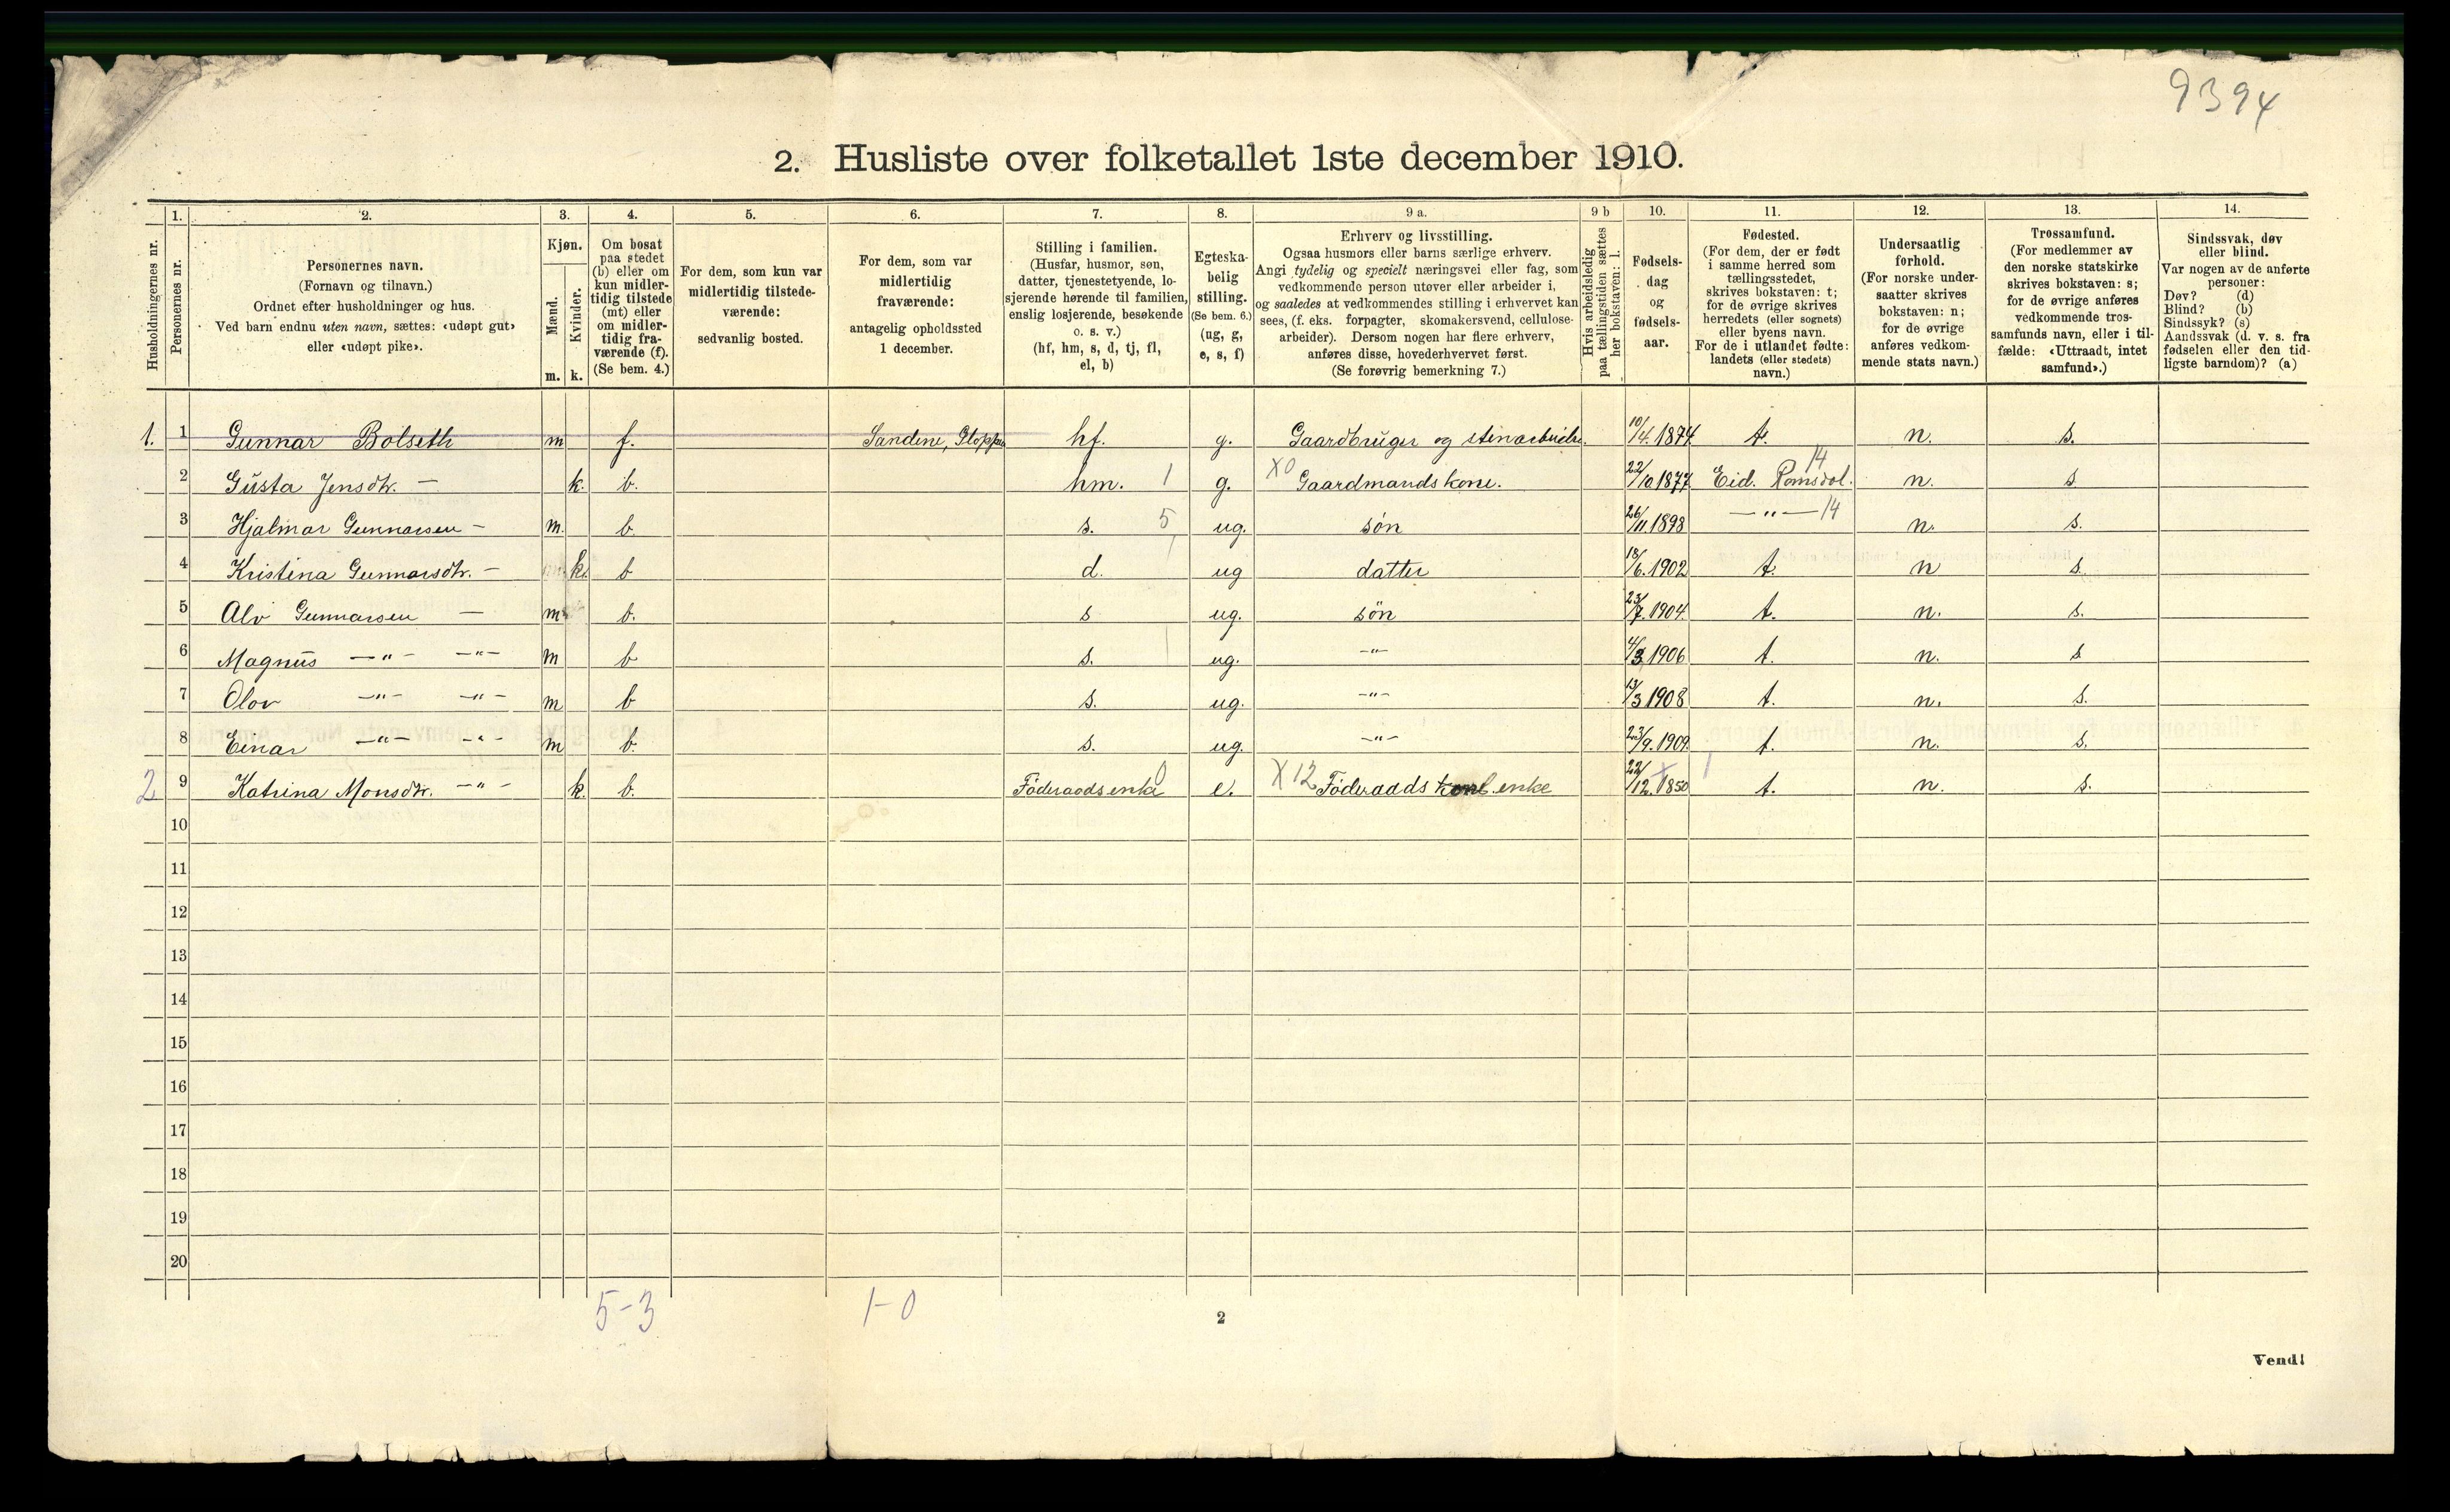 9394
2. Husliste over folketallet 1ste december 1910.
1. 2. 3. 4. 5. 6. 7. 8. 9 a. 9 b 10. 11. 12. 13. 14.
Husholdningernes nr.
Personernes nr.
Personernes navn.
(Fornavn og tilnavn.)
Ordnet efter husholdninger og hus.
Ved barn endnu uten navn, sættes: «udøpt gut»
eller «udøpt pike».
Kjøn.
Mænd.
Kvinder.
m. k.
Om bosat
paa stedet
(b) eller om
kun midler-
tidig tilstede
(mt) eller
om midler-
tidig fra-
værende (f).
(Se bem. 4.)
For dem, som kun var
midlertidig tilstede-
værende:
sedvanlig bosted.
For dem, som var
midlertidig
fraværende:
antagelig opholdssted
1 december.
Stilling i familien.
(Husfar, husmor, søn,
datter, tjenestetyende, lo-
sjerende hørende til familien,
enslig losjerende, besøkende
o. s. v.)
(hf, hm, s, d, tj, fl,
el, b)
Egteska-
belig
stilling.
(Se bem. 6.)
(ug, g,
e, s, f)
Erhverv og livsstilling.
Ogsaa husmors eller barns særlige erhverv.
Angi tydelig og specielt næringsvei eller fag, som
vedkommende person utøver eller arbeider i,
og saaledes at vedkommendes stilling i erhvervet kan
sees, (f. eks. forpagter, skomakersvend, cellulose-
arbeider). Dersom nogen har flere erhverv,
anføres disse, hovederhvervet først.
(Se forøvrig bemerkning 7.)
Hvis arbeidsledig
paa tællingstiden sættes
her bokstaven: l.
Fødsels-
dag
og
fødsels-
aar.
Fødested.
(For dem, der er født
i samme herred som
tællingsstedet,
skrives bokstaven: t;
for de øvrige skrives
herredets (eller sognets)
eller byens navn.
For de i utlandet fødte:
landets (eller stedets)
navn.)
Undersaatlig
forhold.
(For norske under-
saatter skrives
bokstaven: n;
for de øvrige
anføres vedkom-
mende stats navn.)
Trossamfund.
(For medlemmer av
den norske statskirke
skrives bokstaven: s;
for de øvrige anføres
vedkommende tros-
samfunds navn, eller i til-
fælde: «Uttraadt, intet
samfund».)
Sindssvak, døv
eller blind.
Var nogen av de anførte
personer:
Døv? (d)
Blind? (b)
Sindssyk? (s)
Aandssvak (d. v. s. fra
fødselen eller den tid-
ligste barndom)? (a)
1. 1 Gunnar Bolseth m f. Sandene, Gloppen hf. g. Gaardbruger og stenarbeider. 10/4.1874 t. n. s.
2 Gusta Jensdtr. – k. b. hm. 1 g. X0 Gaardmands kone. 22/10.1877 Eid. Romsdal. 14 n. s
3 Hjalmar Gunnarsen – m. b. s. 5 ug. søn 26/11.1898 – " – 14 n. s.
4 Kristina Gunnarsdtr. – k. b d. ug datter 18/6.1902 t. n s
5 Alv Gunnarsen – m b. s ug. søn 23/7.1904 t. n. s.
6 Magnus – " – – " – m b s. ug. – " – 4/3 1906 t. n. s
7 Olov – " – – " – m b s. ug. – " – 13/3 1908 t. n. s.
8 Einar – " – – " – m b. s. ug. – " – 23/9.1909. t. n. s.
2 9 Katrina Monsdtr. – " – k. b. Föderaadsenke 0 e. X 12 Föderaads enke 22/12.1850 t. n. s.
10
11
12
13
14
15
16
17
18
19
20
5-3 1-0
2
Vend!